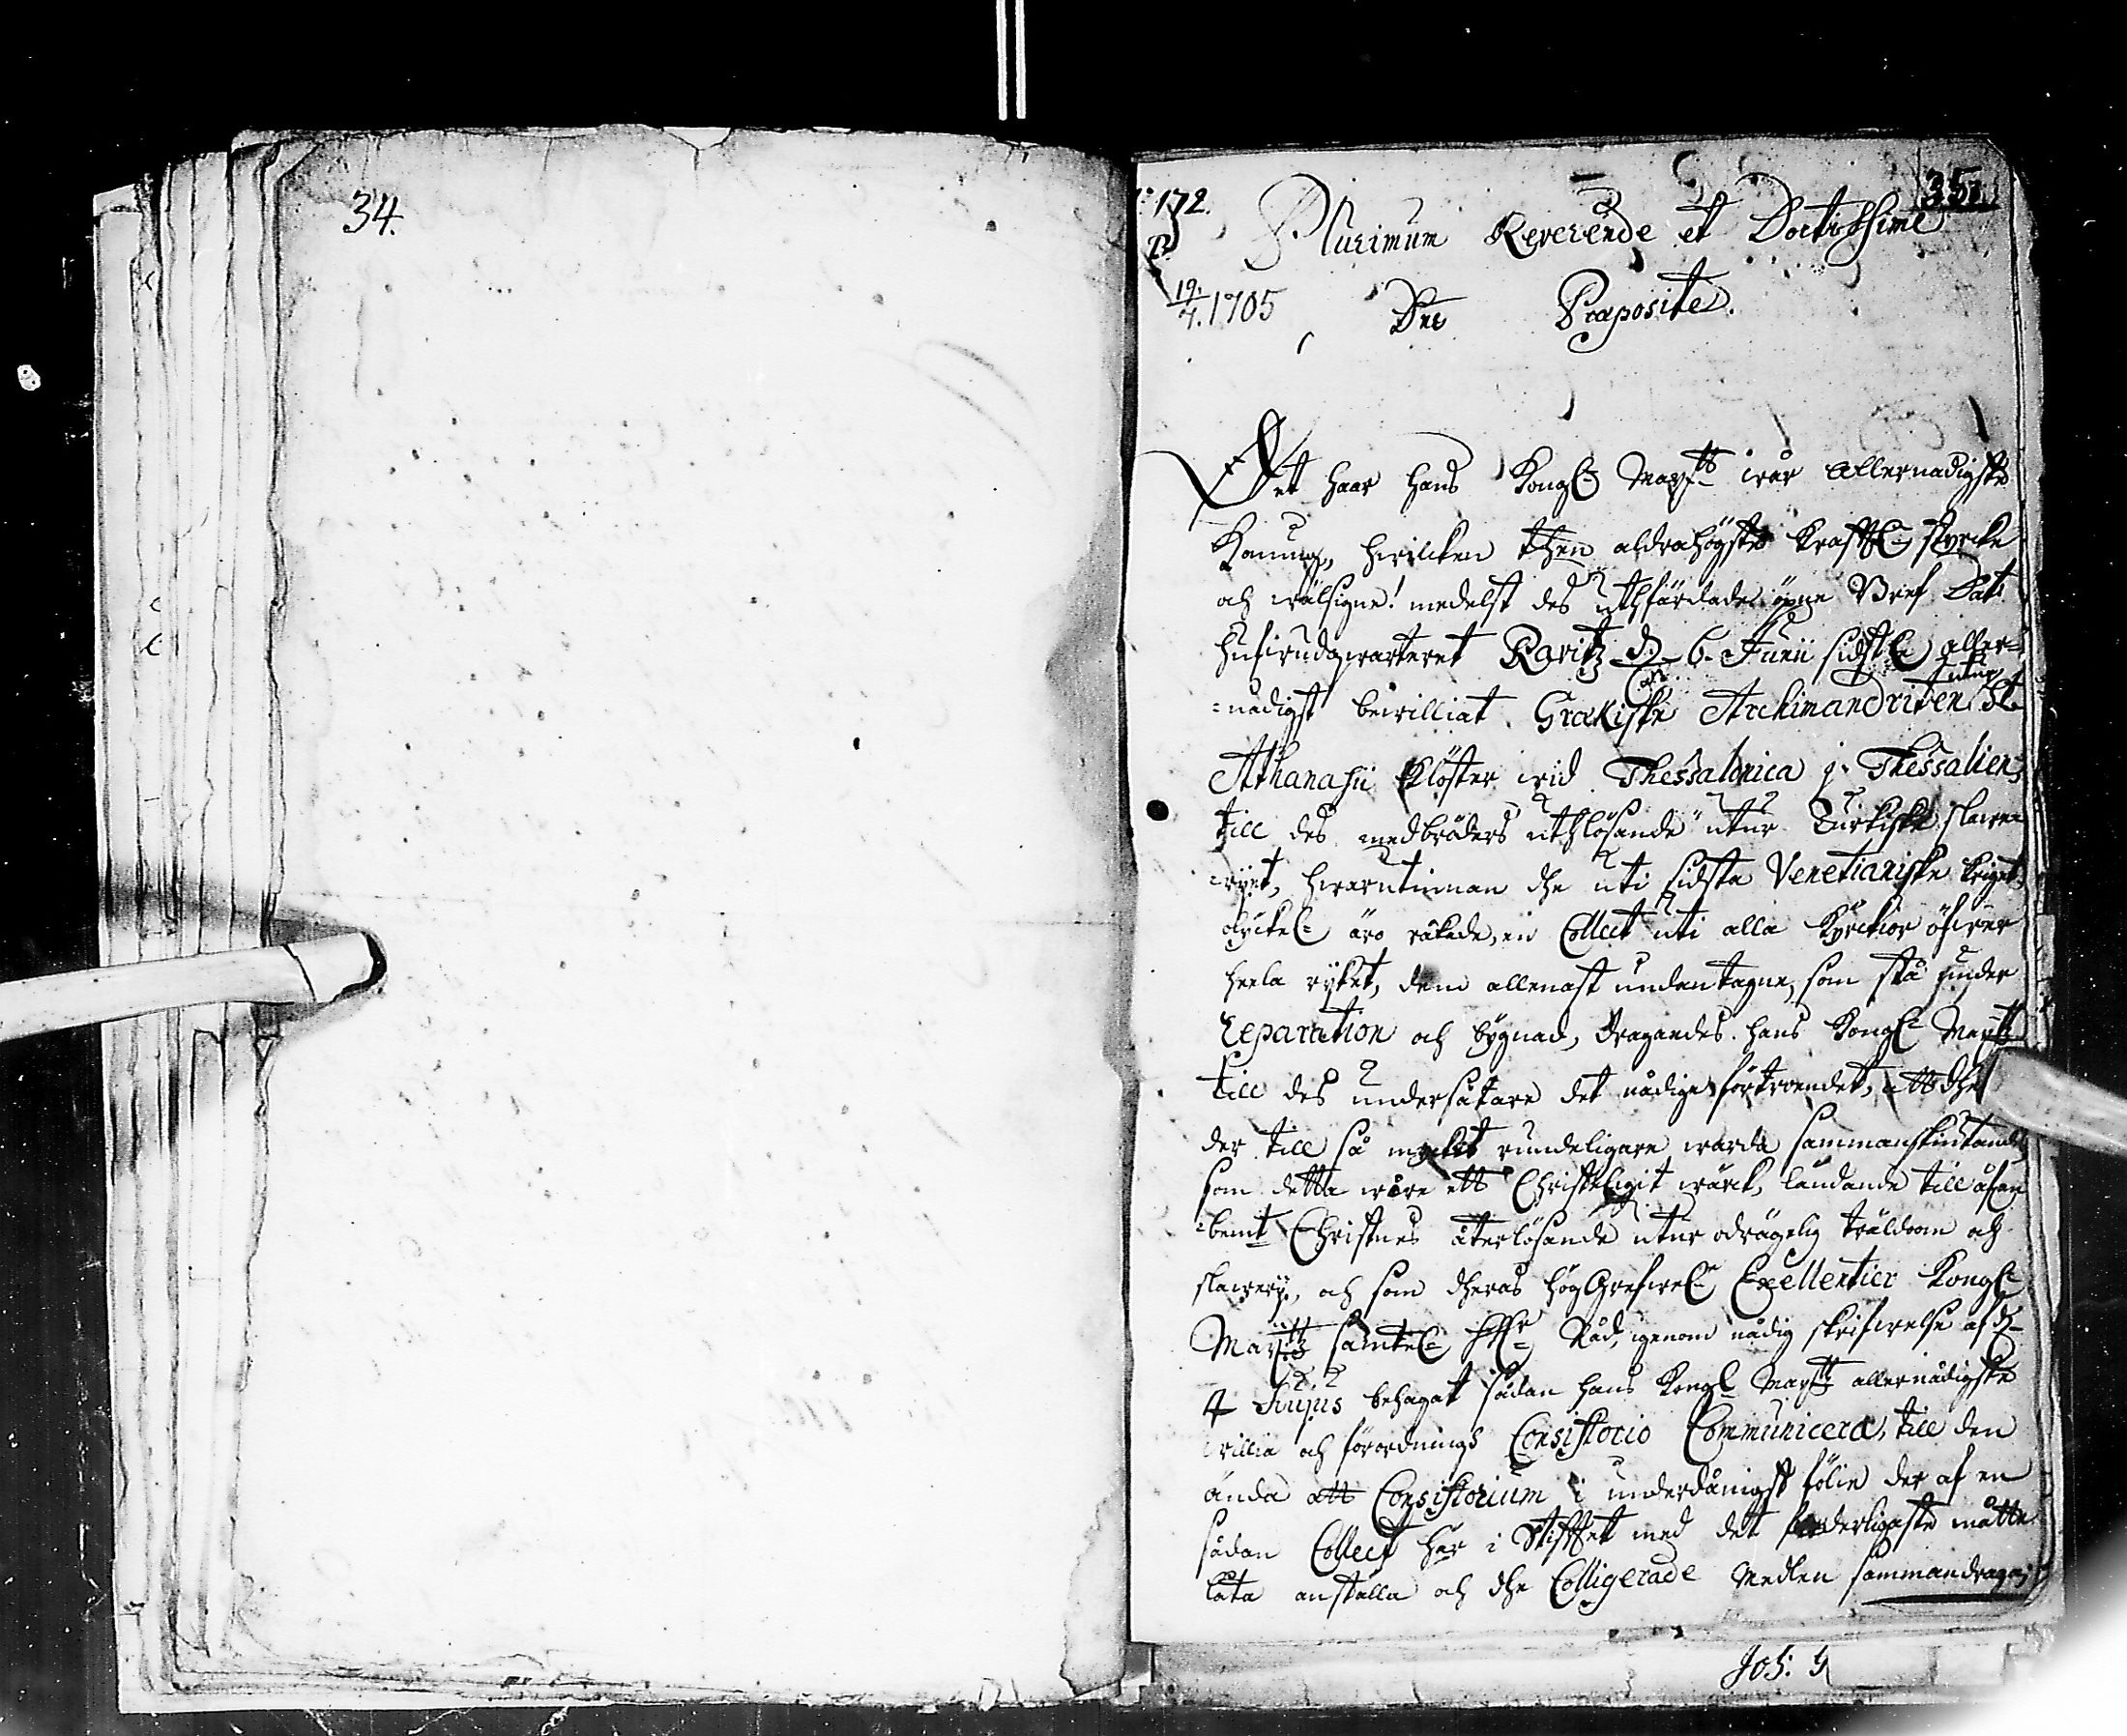 34.
172.
35.
Plurimum Reverende et Doctissime
P.
19/7. 1705
Dne Præposite.
Det haar hans Kongl. Maÿtt wår Allernådigste
Konung, hwilcken then aldrahögste Krafftl. styrcke
och wälsigne! medelst des uthfärdade öpne Bref Dat.
hufwudqwarteret Ravitz d. 6. Junii sidstl. aller=
=nådigst bewilliat Grækiske Archimandriten utur St.
Athanasii Klöster wid Thessalonica i Thessalien,
till des medbröders uthlösande utur Turkiske slawe=
rÿet, hwarutinnan the uti sidsta Venetianiske kriget
olÿckel. äro råkade, en Collect uti alla Kÿrckior öfwer
heela rÿket, dem allenast undantagne, som stå under
reparation och bÿgnad, dragandes hans Kongl. Maÿtt
till des undersåtare det nådige förtroendet, att the
der till så mÿcket rundeligare warda sammanskiutande
som detta wore ett Christeligit wärck, landande till åfwan
bemt. Christnes återlösande utur odrägelig träldoom och
slawerÿ, och som theras högGrefwel. Excellentier Kongl.
Maÿttz samtel. HHr. Råd, genom nådig skrifwelse af d.
4 hujus behagat sådan hans Kongl. Maÿttz allernådigste
willia och förordning Consistorio Communicera, till den
ända att Consistorium i underdånigst fölie der af en
sådan Collect här i Stifftet med det forderligaste måtte
låta anställa och the Colligerade Medlen sammandraga,
Jos: 5